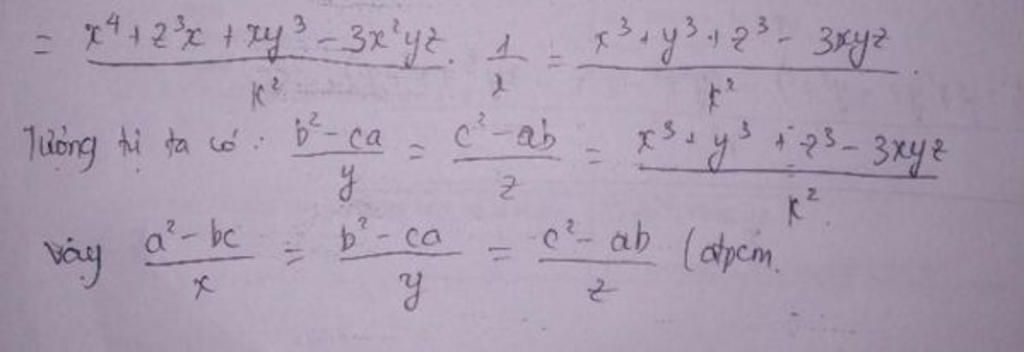 = \frac{x^4 + z^3x + xy^3 - 3x^2yz}{k^2} \cdot \frac{1}{x} = \frac{x^3 + y^3 + z^3 - 3xyz}{k^2}.
Tương tự ta có: \frac{b^2 - ca}{y} = \frac{c^2 - ab}{z} = \frac{x^3 + y^3 + z^3 - 3xyz}{k^2}.
vậy \frac{a^2 - bc}{x} = \frac{b^2 - ca}{y} = \frac{c^2 - ab}{z} (đpcm.